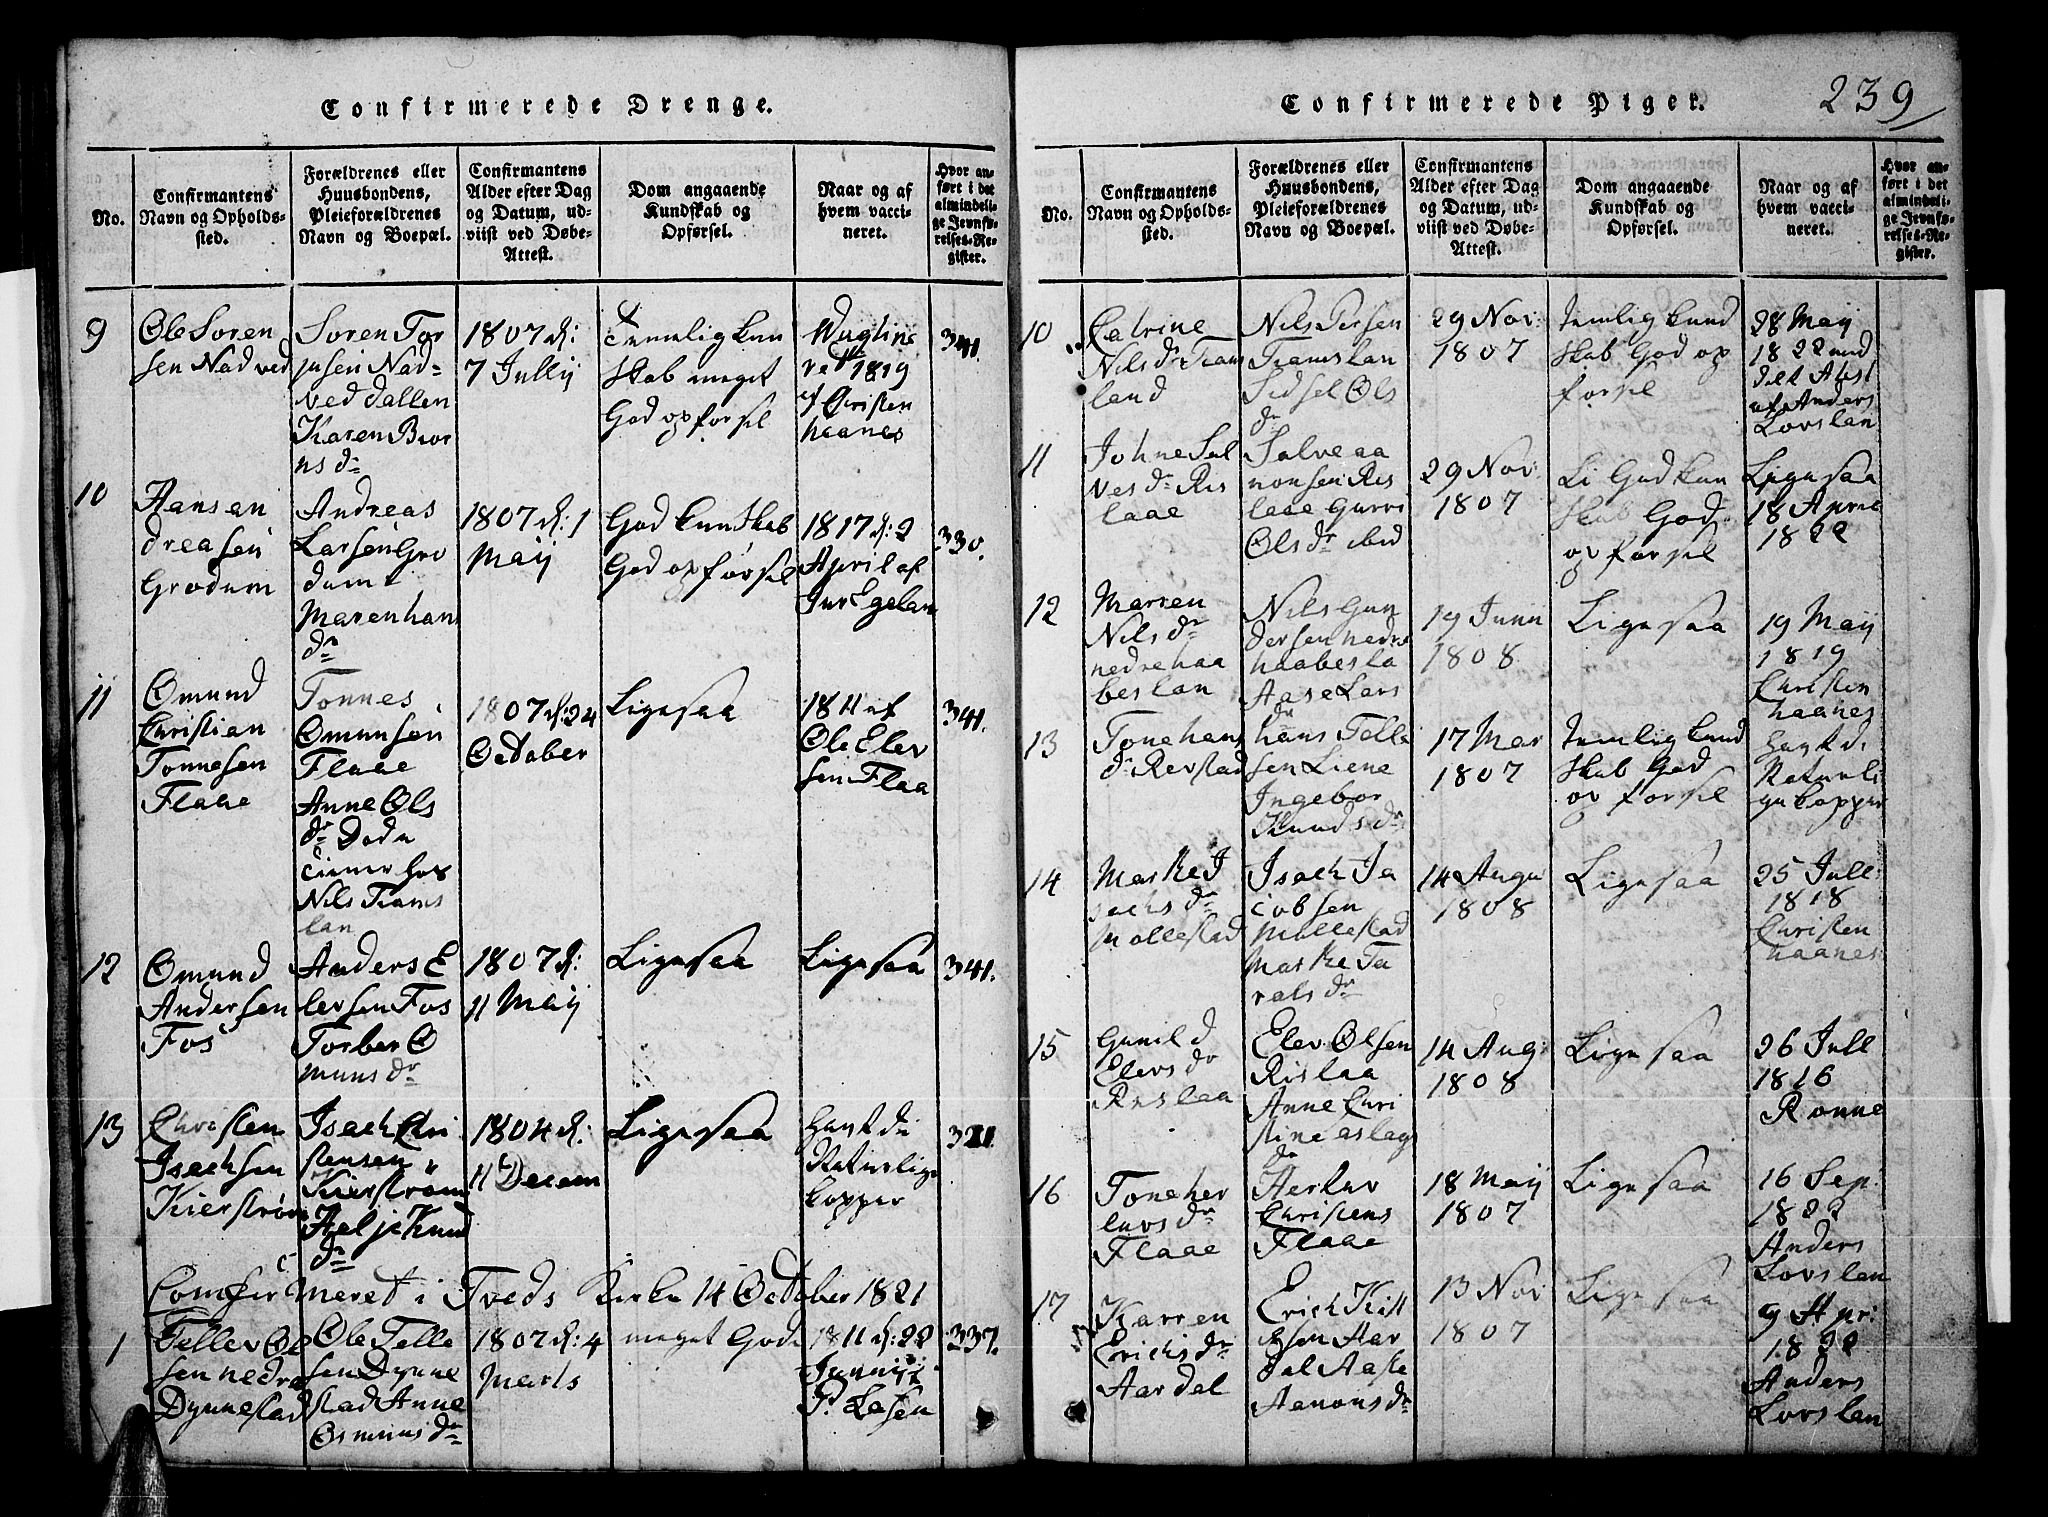 Confirmerede Drenge.
No.
Confirmantens
Navn og Opholds-
sted.
Forældrenes eller
Huusbondens,
Pleieforældrenes
Navn og Boepæl.
Confirmantens
Alder efter Dag
og Datum, ud-
viist ved Døbe-
Attest.
Dom angaaende
Kundskab og
Opførsel.
Naar og af
hvem vacci-
neret.
Hvor an-
ført i det
almindeli-
ge Jevnfø-
relses-Re-
gister.
9
Ole Soren
sen Nadved
Soren Tor
jusen Nad-
ved dallen
Karen Bior
ns dr
1807 d:
7 Jullij
temelig kun
skab meget
God opforsel
1819
af Cristen
haanes
341.
10
Hans an
dreasen
Grodum
Andreas
Larsen Gro
dum
Maren hans
dr
1807 d: 1
Maij
God kunskab
God opførsel
1817 d: 2
April af
Jur Egelan
330.
11
Omund
Christian
Tonnesen
Flaae
Tonnes
Omunsen
Flaae
Anne Ols
dr Dode
tiener hos
Nils Trams
lan
1807 d: 24
October
Ligesaa
1811 af
Ole Elev
sen Flaa
341.
12
Omund
Andersen
Fos
Anders E
lersen Fos
Torber O
muns dr
1807 d:
11 Maij
Ligesaa
Ligesaa
341.
13
Christen
Isachsen
Kierstrøm
Isach Chri
stensen
Kierstrøm
Aelje Knud
dr
1804 d:
11 Decem
Ligesaa
havt de
Naturlige
kopper
321.
Comfirmeret i Tveds Kirke 14 October 1821
1
Tellev Ol
sen nedre
Dynnestad
Ole Telle
sen Dynne
stad Anne
Osmuns dr
1807 d: 4
Marts
meget God
1811 d: 22
Junni
P. Lasen
337.
Confirmerede Piger.
239
No.
Confirmantens
Navn og Opholds-
sted.
Forældrenes eller
Huusbondens,
Pleieforældrenes
Navn og Boepæl.
Confirmantens
Alder efter Dag
og Datum, ud-
viist ved Døbe-
Attest.
Dom angaaende
Kundskab og
Opførsel.
Naar og af
hvem vacci-
neret.
Hvor an-
ført i det
almindeli-
ge Jevnfø-
relses-Re-
gister.
10
Catrine
Nils dr Trams
land
Nils Persen
Tramslan
Sidsel Ols
dr
29 Nov:
1807
temlig kund
skab God op
forsel
28 Maij
1822 med
delt Atest
af Anders
Lovslan
11
Johne Sal
ves dr Ris
laae
Salve aa
nonsen Ris
laae Gurri
Ols dr ibid
29 Nov:
1807
Li God kun
skab God
op forsel
Ligesaa
18 Apriel
1822
12
Marren
Nils dr
nedre haa
beslan
Nils Gun
dersen nedre
haabesla
Aase Lars
dr
19 Junii
1808
Ligesaa
19 Maij
1819
Christen
haanes
13
Tone hans
dr Revstad
hans Telle
sen Liene
Ingebor
Knuds dr
17 Mar
1807
temlig kund
skab God
op forsel
havt de
Naturli
ge kopper
14
Maske I
sachs dr
Mollestad
Isach Ja
cobsen
Mollestad
Maske Ta
rals dr
14 Augu
1808
Ligesaa
25 Jull:
1818
Christen
haanes
15
Gunild
Elevs dr
Rislaa
Elev Olsen
Rislaa
Anne Chri
stine aslag
dr
14 Aug:
1808
Ligesaa
26 Jull
1816
Ronne
16
Tone her
luvs dr
Flaae
Herluv
Christens
Flaae
18 Maij
1807
Ligesaa
16 Sep:
1822
Anders
Lovslan
17
Karren
Erichs dr
Aardal
Erich Kitt
elsen Aar
dal Aase
Aanons dr
13 Nov
1807
Ligesaa
9 Apri:
1822
Anders
Lovslan